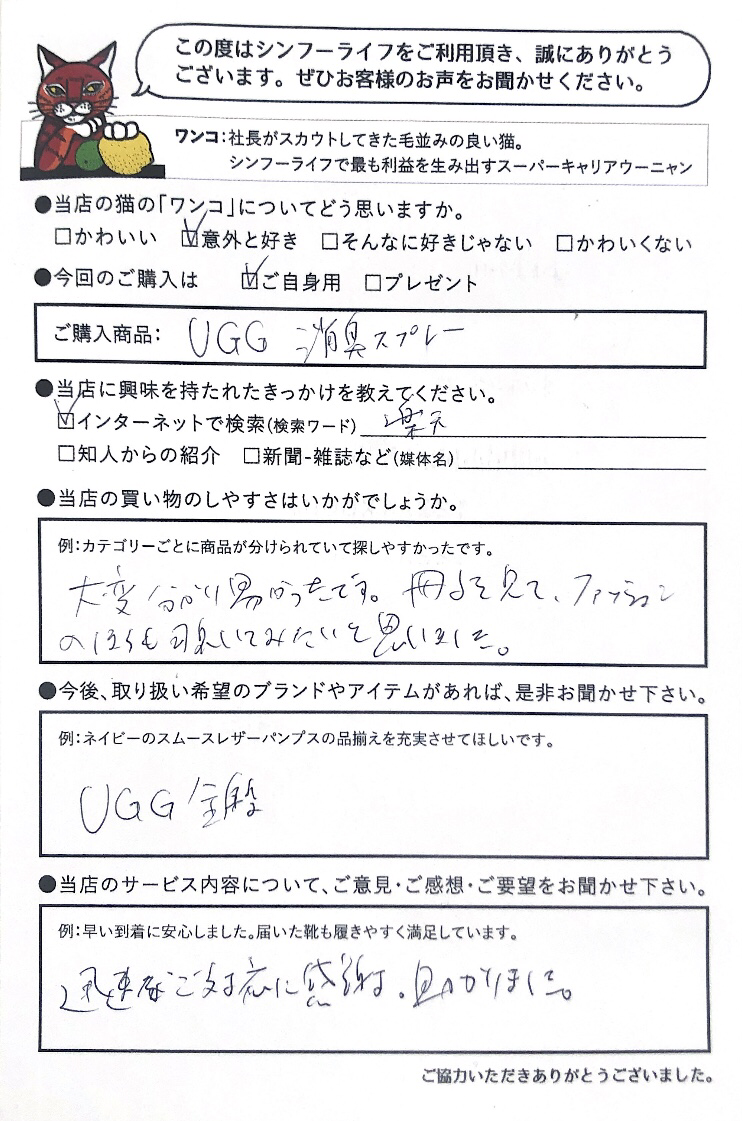 この度はシンフーライフをご利用頂き、誠にありがとう
ございます。ぜひお客様のお声をお聞かせください。
ワンコ：社長がスカウトしてきた毛並みの良い猫。
シンフーライフで最も利益を生み出すスーパーキャリアウーニャン
●当店の猫の「ワンコ」についてどう思いますか。
□かわいい ☑意外と好き □そんなに好きじゃない □かわいくない
●今回のご購入は ☑ご自身用 □プレゼント
ご購入商品： UGG 消臭スプレー
●当店に興味を持たれたきっかけを教えてください。
☑インターネットで検索(検索ワード) 楽天
□知人からの紹介 □新聞-雑誌など(媒体名)
●当店の買い物のしやすさはいかがでしょうか。
例：カテゴリーごとに商品が分けられていて探しやすかったです。
大変分かり易かったです。冊子を見て、ファッション
のほうも覗いてみたいと思いました。
●今後、取り扱い希望のブランドやアイテムがあれば、是非お聞かせ下さい。
例：ネイビーのスムースレザーパンプスの品揃えを充実させてほしいです。
UGG 全般
●当店のサービス内容について、ご意見・ご感想・ご要望をお聞かせ下さい。
例：早い到着に安心しました。届いた靴も履きやすく満足しています。
迅速なご対応に感謝。助かりました。
ご協力いただきありがとうございました。